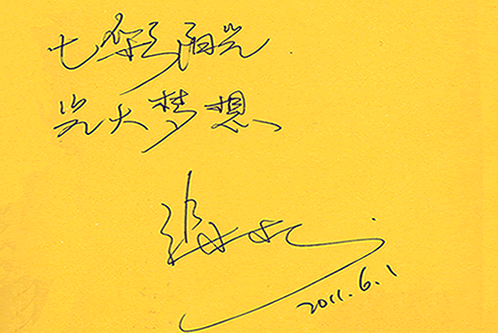 七彩阳光
光大梦想
2011.6.1